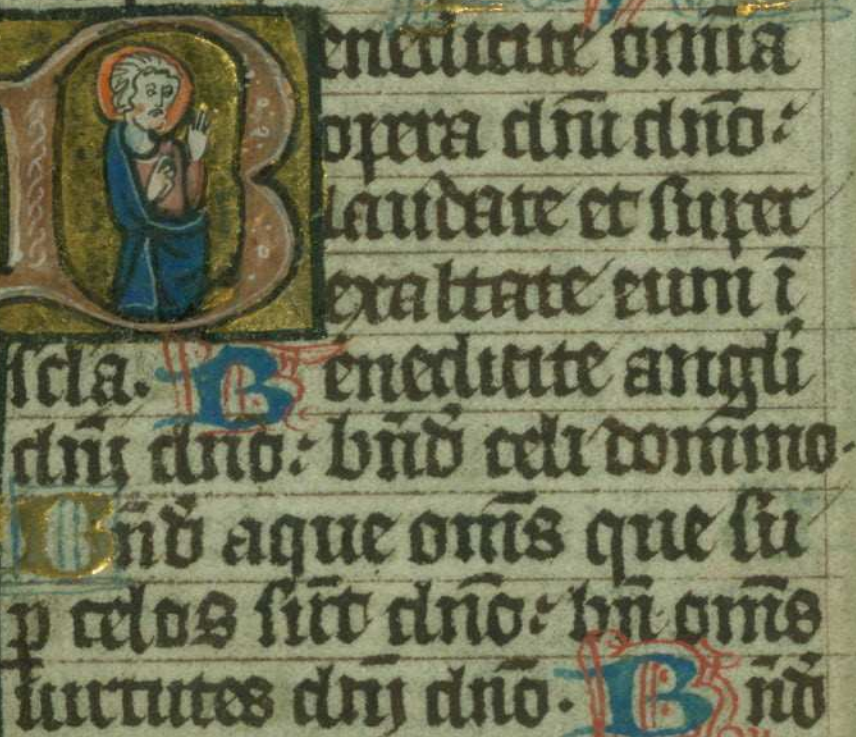 Benedicite om̄ia
opera dn̄i dn̄o:
laudate et super
exaltate eum ī
scl̄a. Benedicite angl̄i
dn̄j dn̄o: bn̄d̄ celi domino.
Bn̄d̄ aque om̄s que su
ꝑ celos sūt dn̄o: bn̄ om̄s
uirtutes dn̄j dn̄o. Bn̄d̄